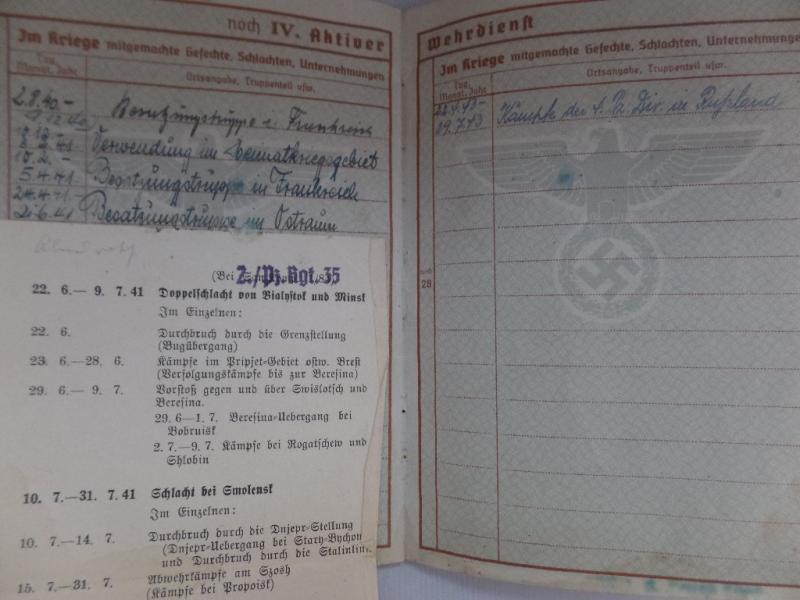 noch IV. Aktiver
Im Kriege mitgemachte Gefechte, Schlachten, Unternehmungen
Tag, Monat, Jahr
Ortsangabe, Truppenteil usw.
2.8.40-
9.12.40
Besatzungstruppe i. Frankreich
10.12.-
8.2.41
Verwendung im Heimatkriegsgebiet
10.2.-
5.4.41
Besatzungstruppe in Frankreich
24.4.41
21.6.41
Besatzungstruppe im Ostraum
(Bei
2./Pz.Rgt. 35
22. 6.— 9. 7.41 Doppelschlacht von Bialystok und Minsk
Im Einzelnen:
22. 6. Durchbruch durch die Grenzstellung
(Bugübergang)
23. 6.—28. 6. Kämpfe im Pripjet-Gebiet ostw. Brest
(Verfolgungskämpfe bis zur Beresina)
29. 6.— 9. 7. Vorstoß gegen und über Swislotsch und
Beresina.
29. 6—1. 7. Beresina-Uebergang bei
Bobruisk
2. 7.—9. 7. Kämpfe bei Rogatschew und
Shlobin
10. 7.—31. 7.41 Schlacht bei Smolensk
Im Einzelnen:
10. 7.—14. 7. Durchbruch durch die Dnjepr-Stellung
(Dnjepr-Uebergang bei Stary-Bychow
und Durchbruch durch die Stalinlinie
15. 7.—31. 7. Abwehrkämpfe am Szosh
(Kämpfe bei Propoisk)
Wehrdienst
Im Kriege mitgemachte Gefechte, Schlachten, Unternehmungen
Tag, Monat, Jahr
Ortsangabe, Truppenteil usw.
22.4.43-
09.7.43
Kämpfe der 4. Pz. Div. in Rußland
28